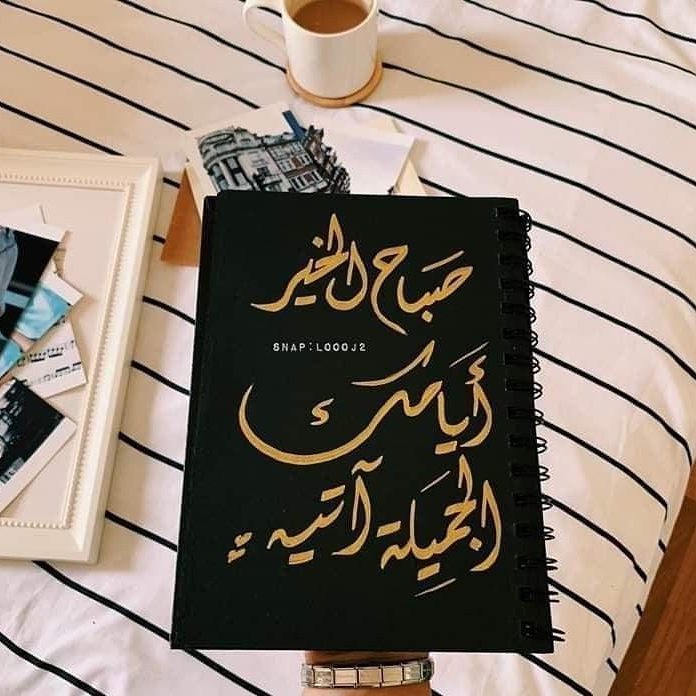 صَبَاح الخير
SNAP:LOOOJ2
أَيَامك
الجَميِلة آتيه